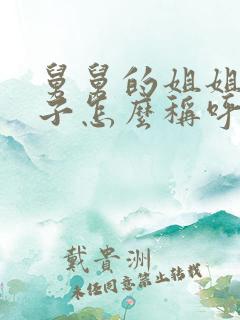 舅舅的姐姐
子怎麽稱呼
戴貴洲
未经同意禁止转载